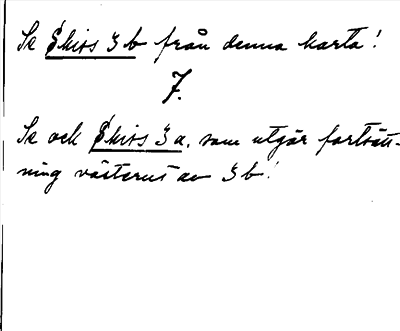 Se Skiss 3 b från denna karta!
7.
Se och Skiss 3 a, som utgör fortsätt-
ning västerut av 3 b!